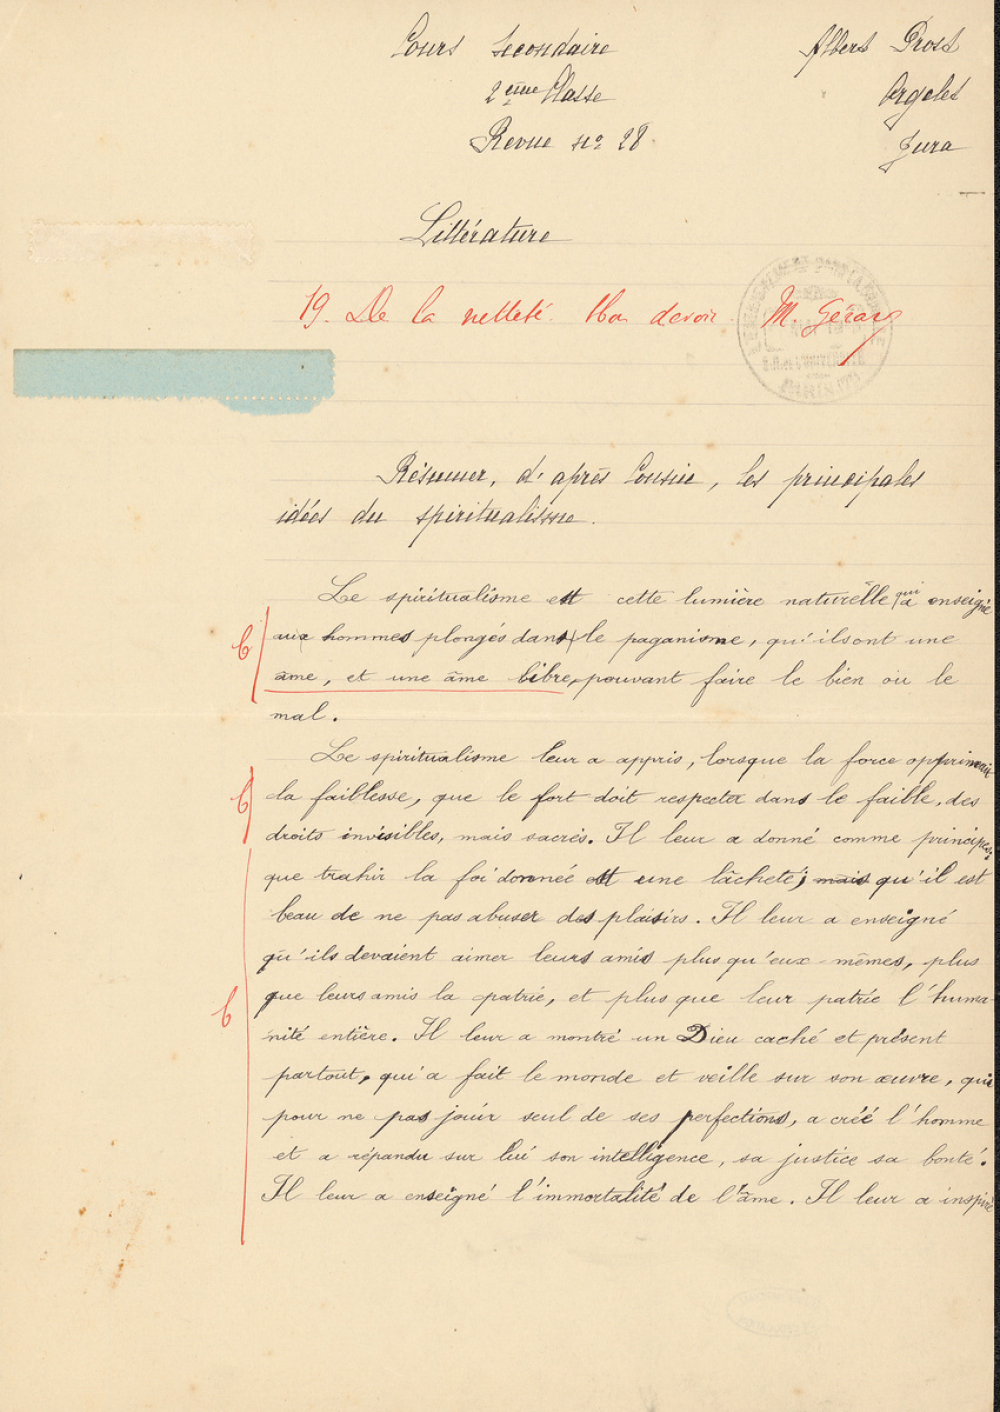 Cours Secondaire
2ème Classe
Revue nº 28
Albert Prost
Orgelet
Jura
Littérature
19. De la netteté. Bon devoir. M. Gérard
Résumer, d'après Cousin, les principales
idées du spiritualisme.
Le spiritualisme est cette lumière naturelle qui a enseigné
aux hommes plongés dans le paganisme, qu'ils ont une
âme, et une âme libre, pouvant faire le bien ou le
mal.
Le spiritualisme leur a appris, lorsque la force opprimait
la faiblesse, que le fort doit respecter dans le faible, des
droits invisibles, mais sacrés. Il leur a donné comme principes:
que trahir la foi donnée est une lâcheté; mais qu'il est
beau de ne pas abuser des plaisirs. Il leur a enseigné
qu'ils devaient aimer leurs amis plus qu'eux-mêmes, plus
que leurs amis la patrie, et plus que leur patrie l'huma-
nité entière. Il leur a montré un Dieu caché et présent
partout, qui a fait le monde et veille sur son œuvre, qui
pour ne pas jouir seul de ses perfections, a créé l'homme
et a répandu sur lui son intelligence, sa justice sa bonté.
Il leur a enseigné l'immortalité de l'âme. Il leur a inspiré
B
B
B